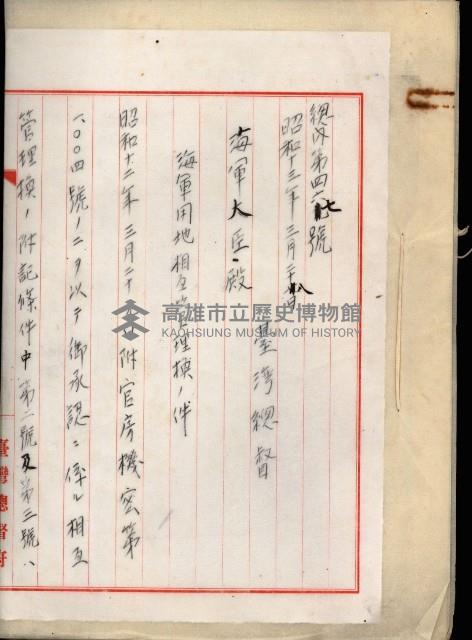 總內第四六號
昭和十三年三月二十八日
臺灣總督
海軍大臣殿
海軍用地相互管理換ノ件
昭和十二年三月二十 附官房機密第
一〇〇四號ノ二ヲ以テ御承認ニ係ル相互
管理換ノ附記條件中第二號及第三號ハ
臺灣總督府
高雄市立歷史博物館
KAOHSIUNG MUSEUM OF HISTORY